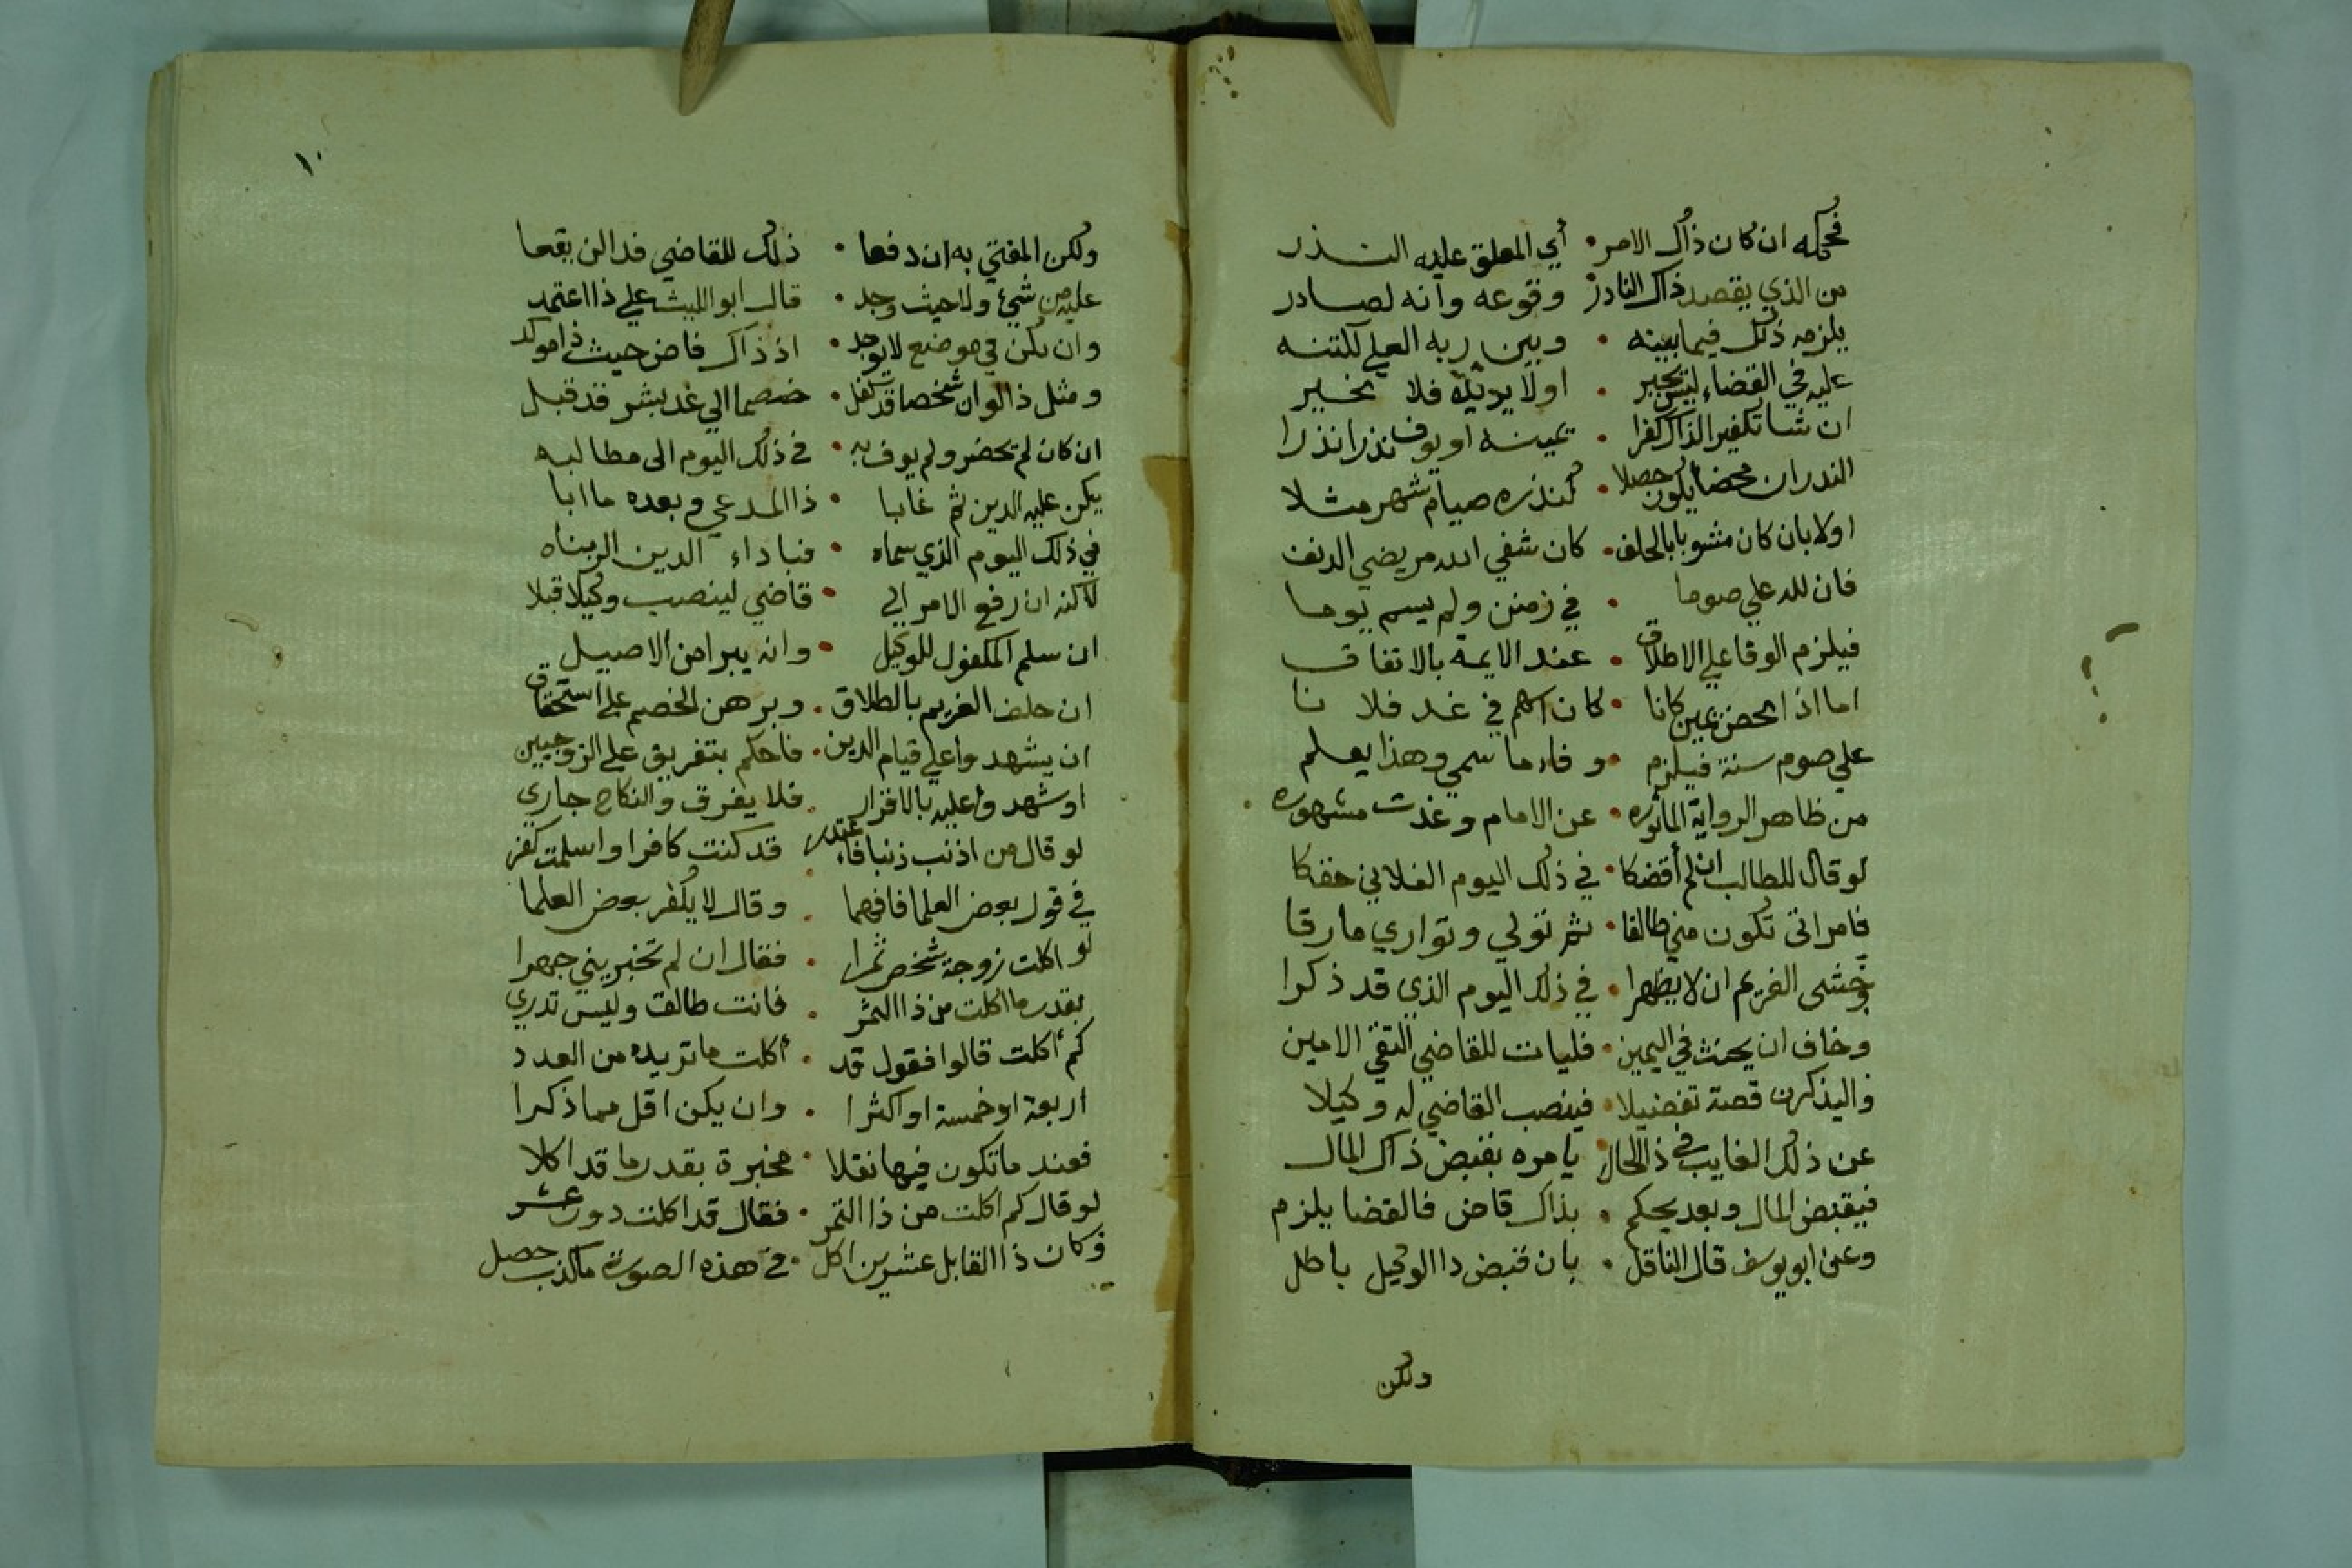 فحكمه ان كان ذاك الامر • أي المعلق عليه النذر
من الذي يقصد ذاك الناذر • وقوعه وانه لصادر
يلزمه ذلك فيما بينه • وبين ربه العلي لكنه
عليه في القضاء ليس يجبر • اولا يريده فلا تخيير
ان شا تكفيرا لذاك كفرا • يمينه او يوف نذرا نذرا
النذر ان محضا يكون حصلا • كنذره صيام شهر مثلا
اولا بان كان مشوبا بالحلف • كان شفي الله مريضي الدنف
فان لله علي صوما • في زمن ولم يسم يوما
فيلزم الوفا علي الاطلاق • عند الايمة بالاتفاق
اما اذا محض يمين كانا • كان اكلم في غد فلانا
علي صوم سنة فيلزم • وفاء ما سمي وهذا يعلم
من ظاهر الرواية الماثوره • عن الامام وغدت مشهوره
لو قال للطالب ان لم أقضكا • في ذلك اليوم الفلاني حقكا
فامراتي تكون مني طالقا • ثم تولي وتواري مارقا
وخشى الغريم ان لا يظهرا • في ذلك اليوم الذي قد ذكرا
وخاف ان يحنث في اليمين • فليات للقاضي التقي الامين
واليذكرن قصة تفضيلا • فينصب القاضي له وكيلا
عن ذلك الغايب في ذا الحال • يامره بقبض ذاك المال
فيقبض المال وبعد يحكم • بذاك قاض فالقضا يلزم
وعن ابو يوسف قال الناقل • بان قبض ذا الوكيل باطل
ولكن
١٠
ولكن المفتي به ان دفعا • ذلك للقاضي فذا لن يقعا
عليه من شيء ولا حيث وجد • قال ابو الليث علي ذا اعتمد
وان يكن في موضع لا يوجد • اذ ذاك قاض حيث ذا موكد
ومثل ذا لو ان شخصا قد كفل • خصما الي غد بشر قد قبل
ان كان لم يحضر ولم يوف به • في ذلك اليوم الى مطالبه
يكن عليه الدين ثم غابا • ذا المدعي وبعده ما ابا
في ذلك اليوم الذي سماه • فبا داء الدين الزمناه
لاكنه ان رفع الامر الي • قاضي لينصب وكيلا قبلا
ان سلم المكفول للوكيل • وانه يبرا من الاصيل
ان حلف الغريم بالطلاق • وبرهن الخصم علي استحقاق
ان يشهدوا علي قيام الدين • فاحكم بتفريق علي الزوجين
او شهدوا عليه بالاقرار • فلا يفرق والنكاح جاري
لو قال من اذنب ذنبا فاعتذر • قد كنت كافرا واسلمت كفر
في قول بعض العلما فافهما • وقال لا يكفر بعض العلما
لو اكلت زوجة شخص تمرا • فقال ان لم تخبريني جهرا
بقدر ما اكلت من ذا التمر • فانت طالق وليس تدري
كم أكلت قالوا فقول قد • أكلت ما تريده من العدد
اربعة او خمسة او اكثرا • وان يكن اقل مما ذكرا
فعند ما تكون فيها نقلا • مخبرة بقدر ما قد اكلا
لو قال كم اكلت من ذا التمر • فقال قد اكلت دون عشر
وكان ذا القايل عشرين اكل • في هذه الصورة ما كذب حصل